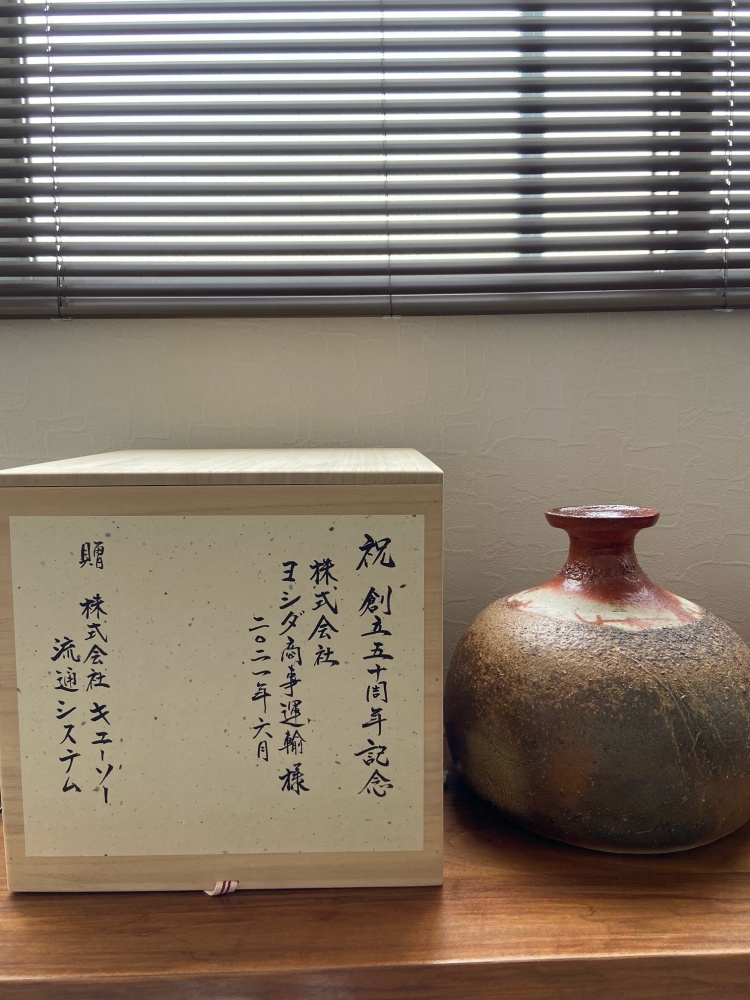 祝 創立五十周年記念
株式会社
ヨシダ商事運輸 様
二〇二一年六月
贈 株式会社 キユーソー
流通システム